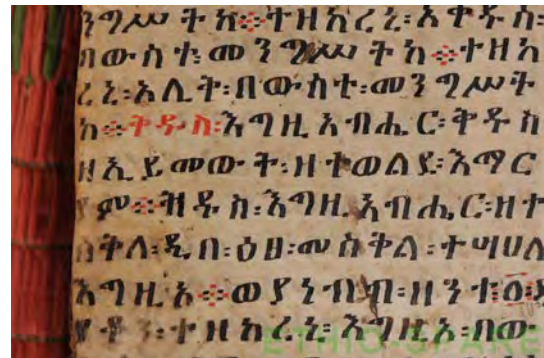 ንግሥትከ፨ተዘከረኒ፡እቀዱስ፡
በውስተ፡መንግሥትከ፨ተዘከ
ረኒ፡እሊት፡በውስተ፡መንግሥት
ከ፨ቅዱስ፡እግዚአብሔር፡ቅዱስ
ዘኢይመውት፡ዘተወልደ፡እማር
ያም፨ቅዱስ፡እግዚአብሔር፡ዘተ
ሰቅለ፡ዲበ፡ዕፀ፡መስቅል፡ተሣሀለ
እግዚኦ፨ወያነብብ፡ዘንተ፡
ተዘከረኒ፡እግዚኦ፡በው
ETHIO-SPARE